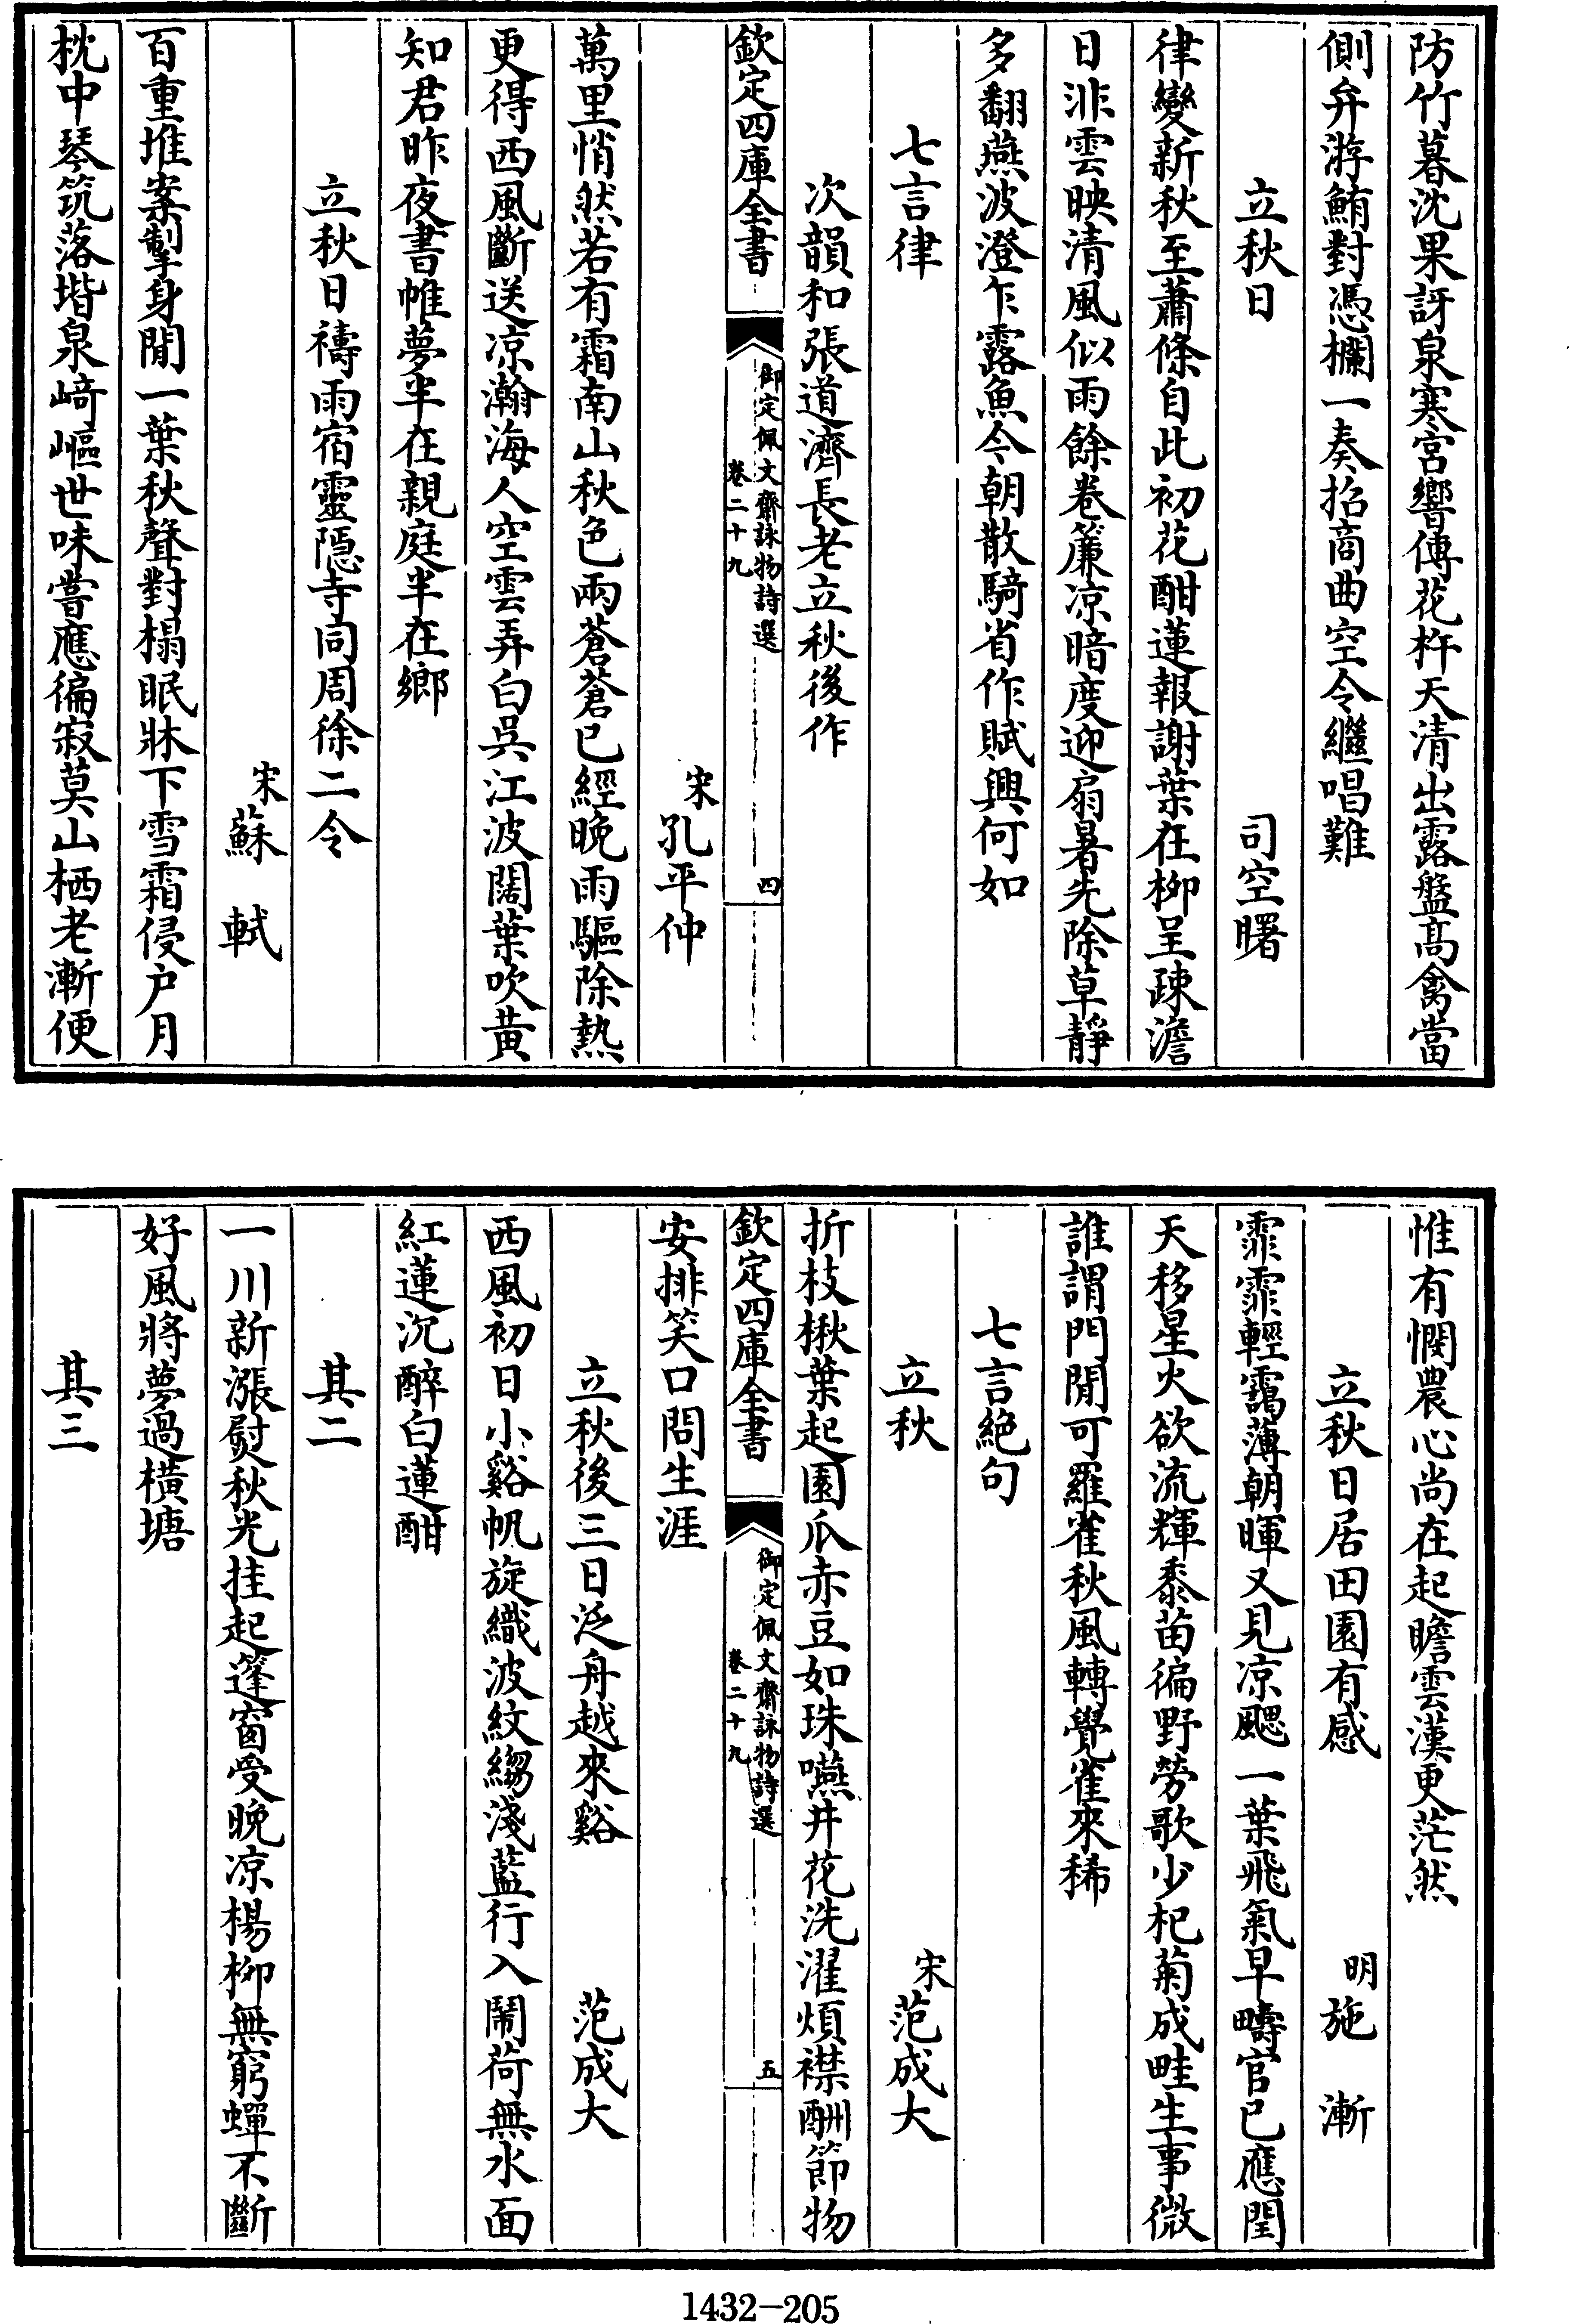 防竹暮沈果訝泉寒宮響傳花杵天清出露盤髙禽當
側弁游鮪對憑欄一奏招商曲空令繼唱難
立秋日　司空曙
律變新秋至蕭條自此初花酣蓮報謝葉在栁呈疎澹
日非雲映清風似雨餘卷簾凉暗度迎扇暑先除草靜
多翻燕波澄乍露魚今朝散騎省作賦興何如
七言律
次韻和張道濟長老立秋後作
欽定四庫全書　御定佩文齋詠物詩選　卷二十九　四
宋孔平仲
萬里悄然若有霜南山秋色兩蒼蒼已經晚雨驅除熱
更得西風斷送凉瀚海人空雲弄白吳江波闊葉吹黄
知君昨夜書帷夢半在親庭半在鄉
立秋日禱雨宿靈隠寺同周徐二令
宋蘇　軾
百重堆案掣身閒一葉秋聲對榻眠牀下雪霜侵户月
枕中琴筑落堦泉﨑嶇世味嘗應徧寂莫山栖老漸便
惟有憫農心尚在起瞻雲漢更茫然
立秋日居田園有感　明施　漸
霏霏輕靄薄朝暉又見凉颸一葉飛氣早疇官已應閏
天移星火欲流輝黍苗徧野勞歌少杞菊成畦生事微
誰謂門閒可羅雀秋風轉覺雀來稀
七言絶句
立秋　宋范成大
折枝楸葉起園瓜赤豆如珠嚥井花洗濯煩襟酬節物
欽定四庫全書　御定佩文齋詠物詩選　卷二十九　五
安排笑口問生涯
立秋後三日泛舟越來谿　范成大
西風初日小谿帆旋織波紋縐淺藍行入鬧荷無水面
紅蓮沉醉白蓮酣
其二
一川新漲熨秋光挂起篷窗受晚凉楊栁無窮蟬不斷
好風將夢過橫塘
其三
1432—205